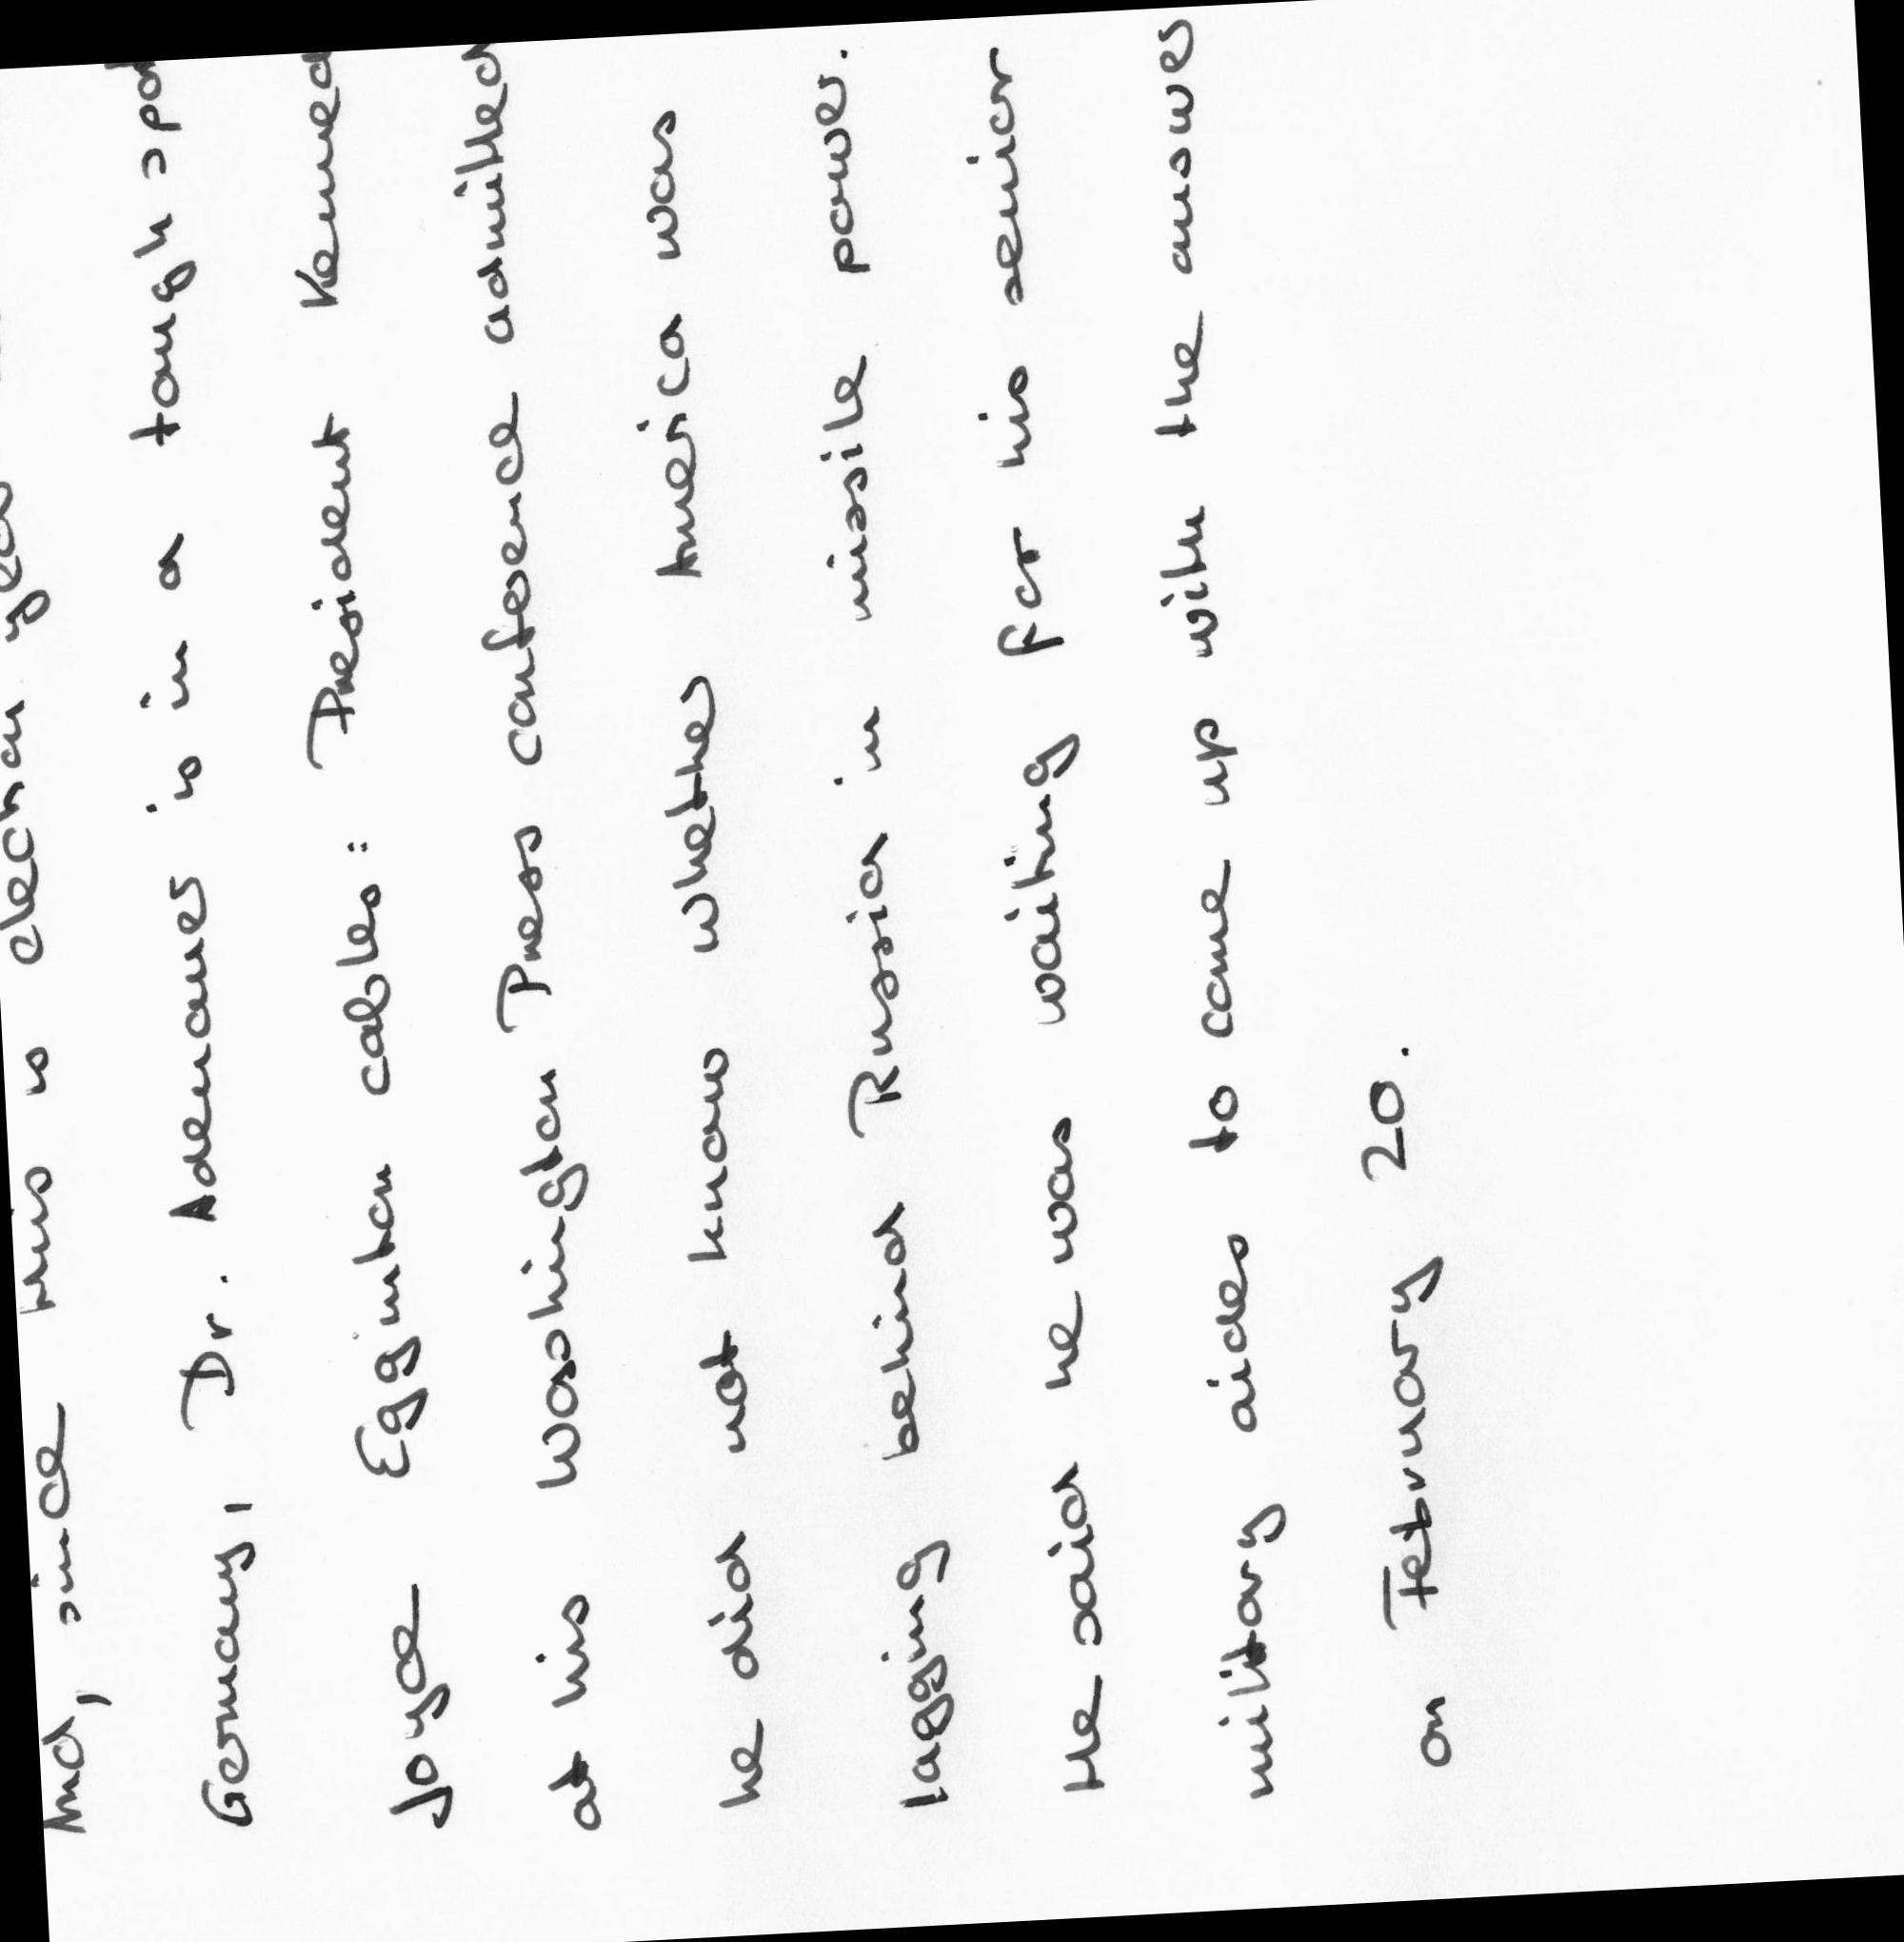 And, since this is election year
Germany, Dr. Adenauer is in a tough spot
Joyce Egginton cables: President Kenned
at his Washington Press conference admitted
he did not know whether America was
lagging behind Russia in missile power.
He said he was waiting for his senior
military aides to come up with the answer
on February 20.